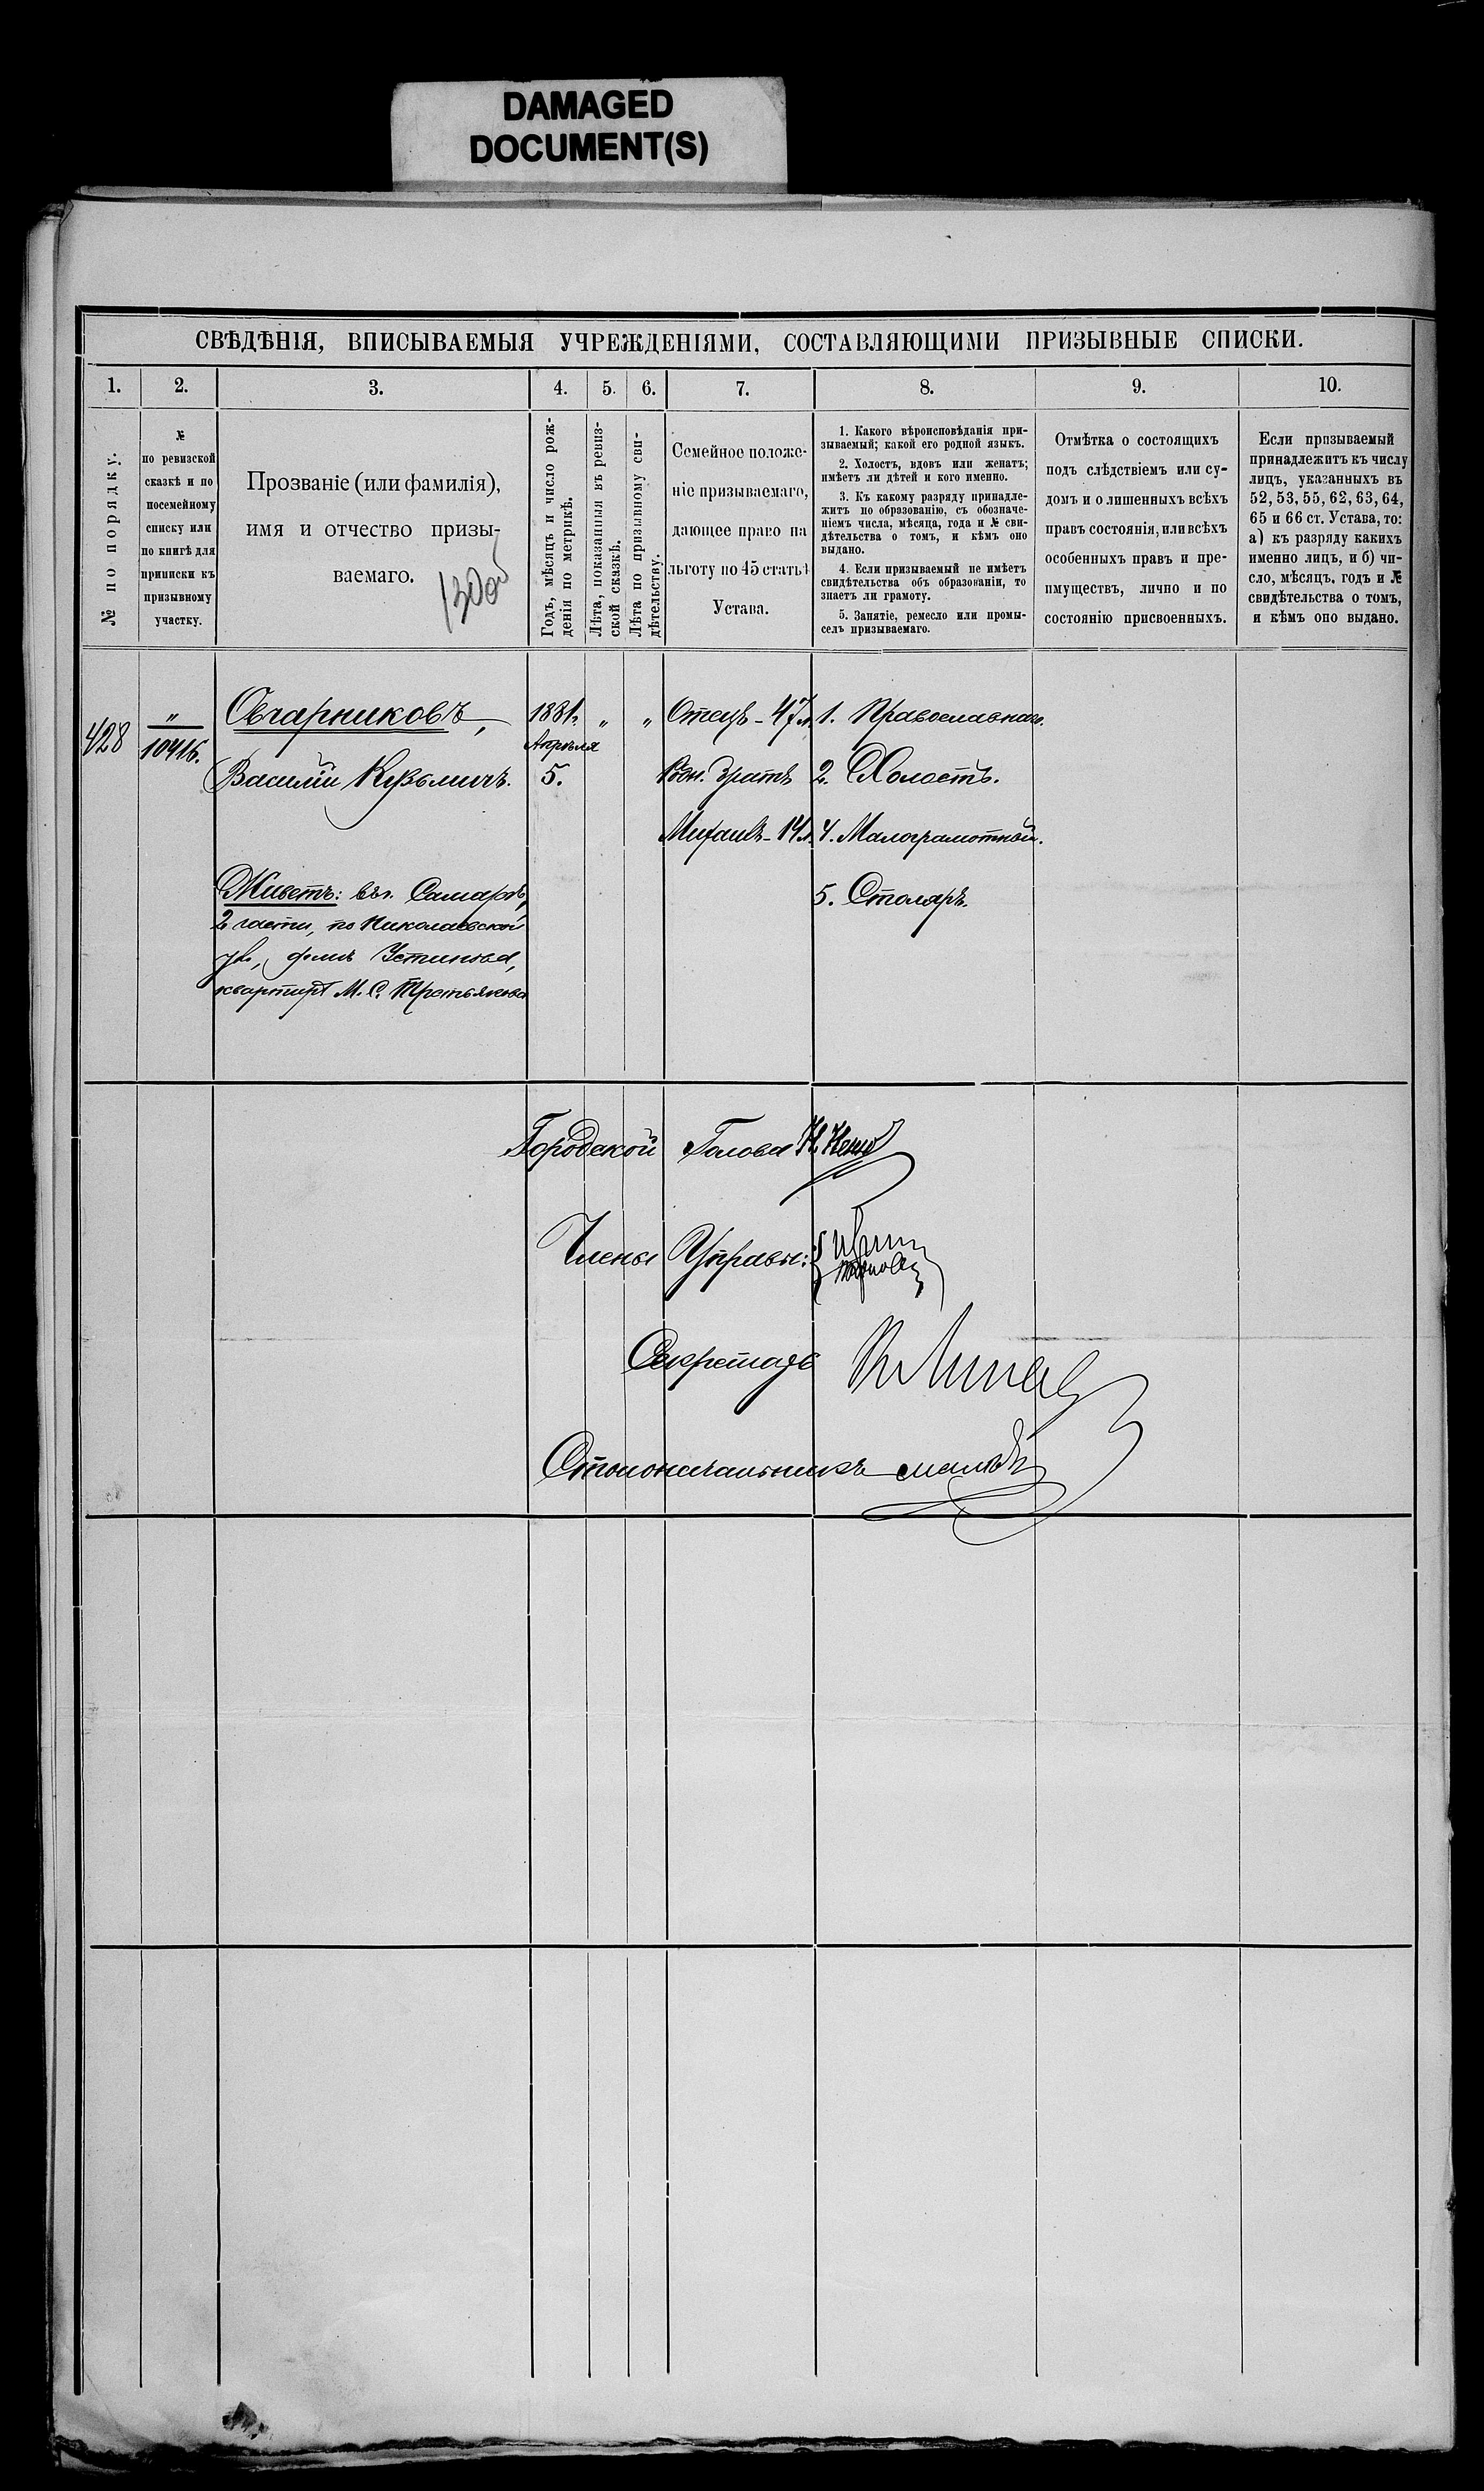 DAMAGED
DOCUMENT(S)
СВѢДѢНІЯ, ВПИСЫВАЕМЫЯ УЧРЕЖДЕНІЯМИ, СОСТАВЛЯЮЩИМИ ПРИЗЫВНЫЕ СПИСКИ.
1.
2.
3.
4.
5.
6.
7.
8.
9.
10.
№ по порядку.
№
по ревизской
сказкѣ и по
посемейному
списку или
по книгѣ для
приписки къ
призывному
участку.
Прозваніе (или фамилія),
имя и отчество призы-
ваемаго.
Годъ, мѣсяцъ и число рож-
денія по метрикѣ.
Лѣта, показанныя въ ревиз-
ской сказкѣ.
Лѣта по призывному сви-
дѣтельству.
Семейное положе-
ніе призываемаго,
дающее право на
льготу по 45 статьѣ
Устава.
1. Какого вѣроисповѣданія при-
зываемый; какой его родной языкъ.
2. Холостъ, вдовъ или женатъ;
имѣетъ ли дѣтей и кого именно.
3. Къ какому разряду принадле-
житъ по образованію, съ обозначе-
ніемъ числа, мѣсяца, года и № сви-
дѣтельства о томъ, и кѣмъ оно
выдано.
4. Если призываемый не имѣетъ
свидѣтельства объ образованіи, то
знаетъ ли грамоту.
5. Занятіе, ремесло или промы-
селъ призываемаго.
Отмѣтка о состоящихъ
подъ слѣдствіемъ или су-
домъ и о лишенныхъ всѣхъ
правъ состоянія, или всѣхъ
особенныхъ правъ и пре-
имуществъ, лично и по
состоянію присвоенныхъ.
Если призываемый
принадлежитъ къ числу
лицъ, указанныхъ въ
52, 53, 55, 62, 63, 64,
65 и 66 ст. Устава, то:
а) къ разряду какихъ
именно лицъ, и б) чи-
сло, мѣсяцъ, годъ и №
свидѣтельства о томъ,
и кѣмъ оно выдано.
428
"
10416.
Овчарниковъ,
Василій Кузьмичъ.
Живетъ: въ г. Самарѣ,
2 части, по Николаевской
ул., домъ Устинова,
квартира М. С. Третьякова
1881.
Апрѣля
5.
"
"
Отецъ - 47 л.
Родн. братъ
Михаилъ - 14 л.
1. Православнаго.
2. Холостъ.
4. Малограмотный.
5. Столяръ.
Городской Голова
Члены Управы:
Секретарь
Столоначальникъ